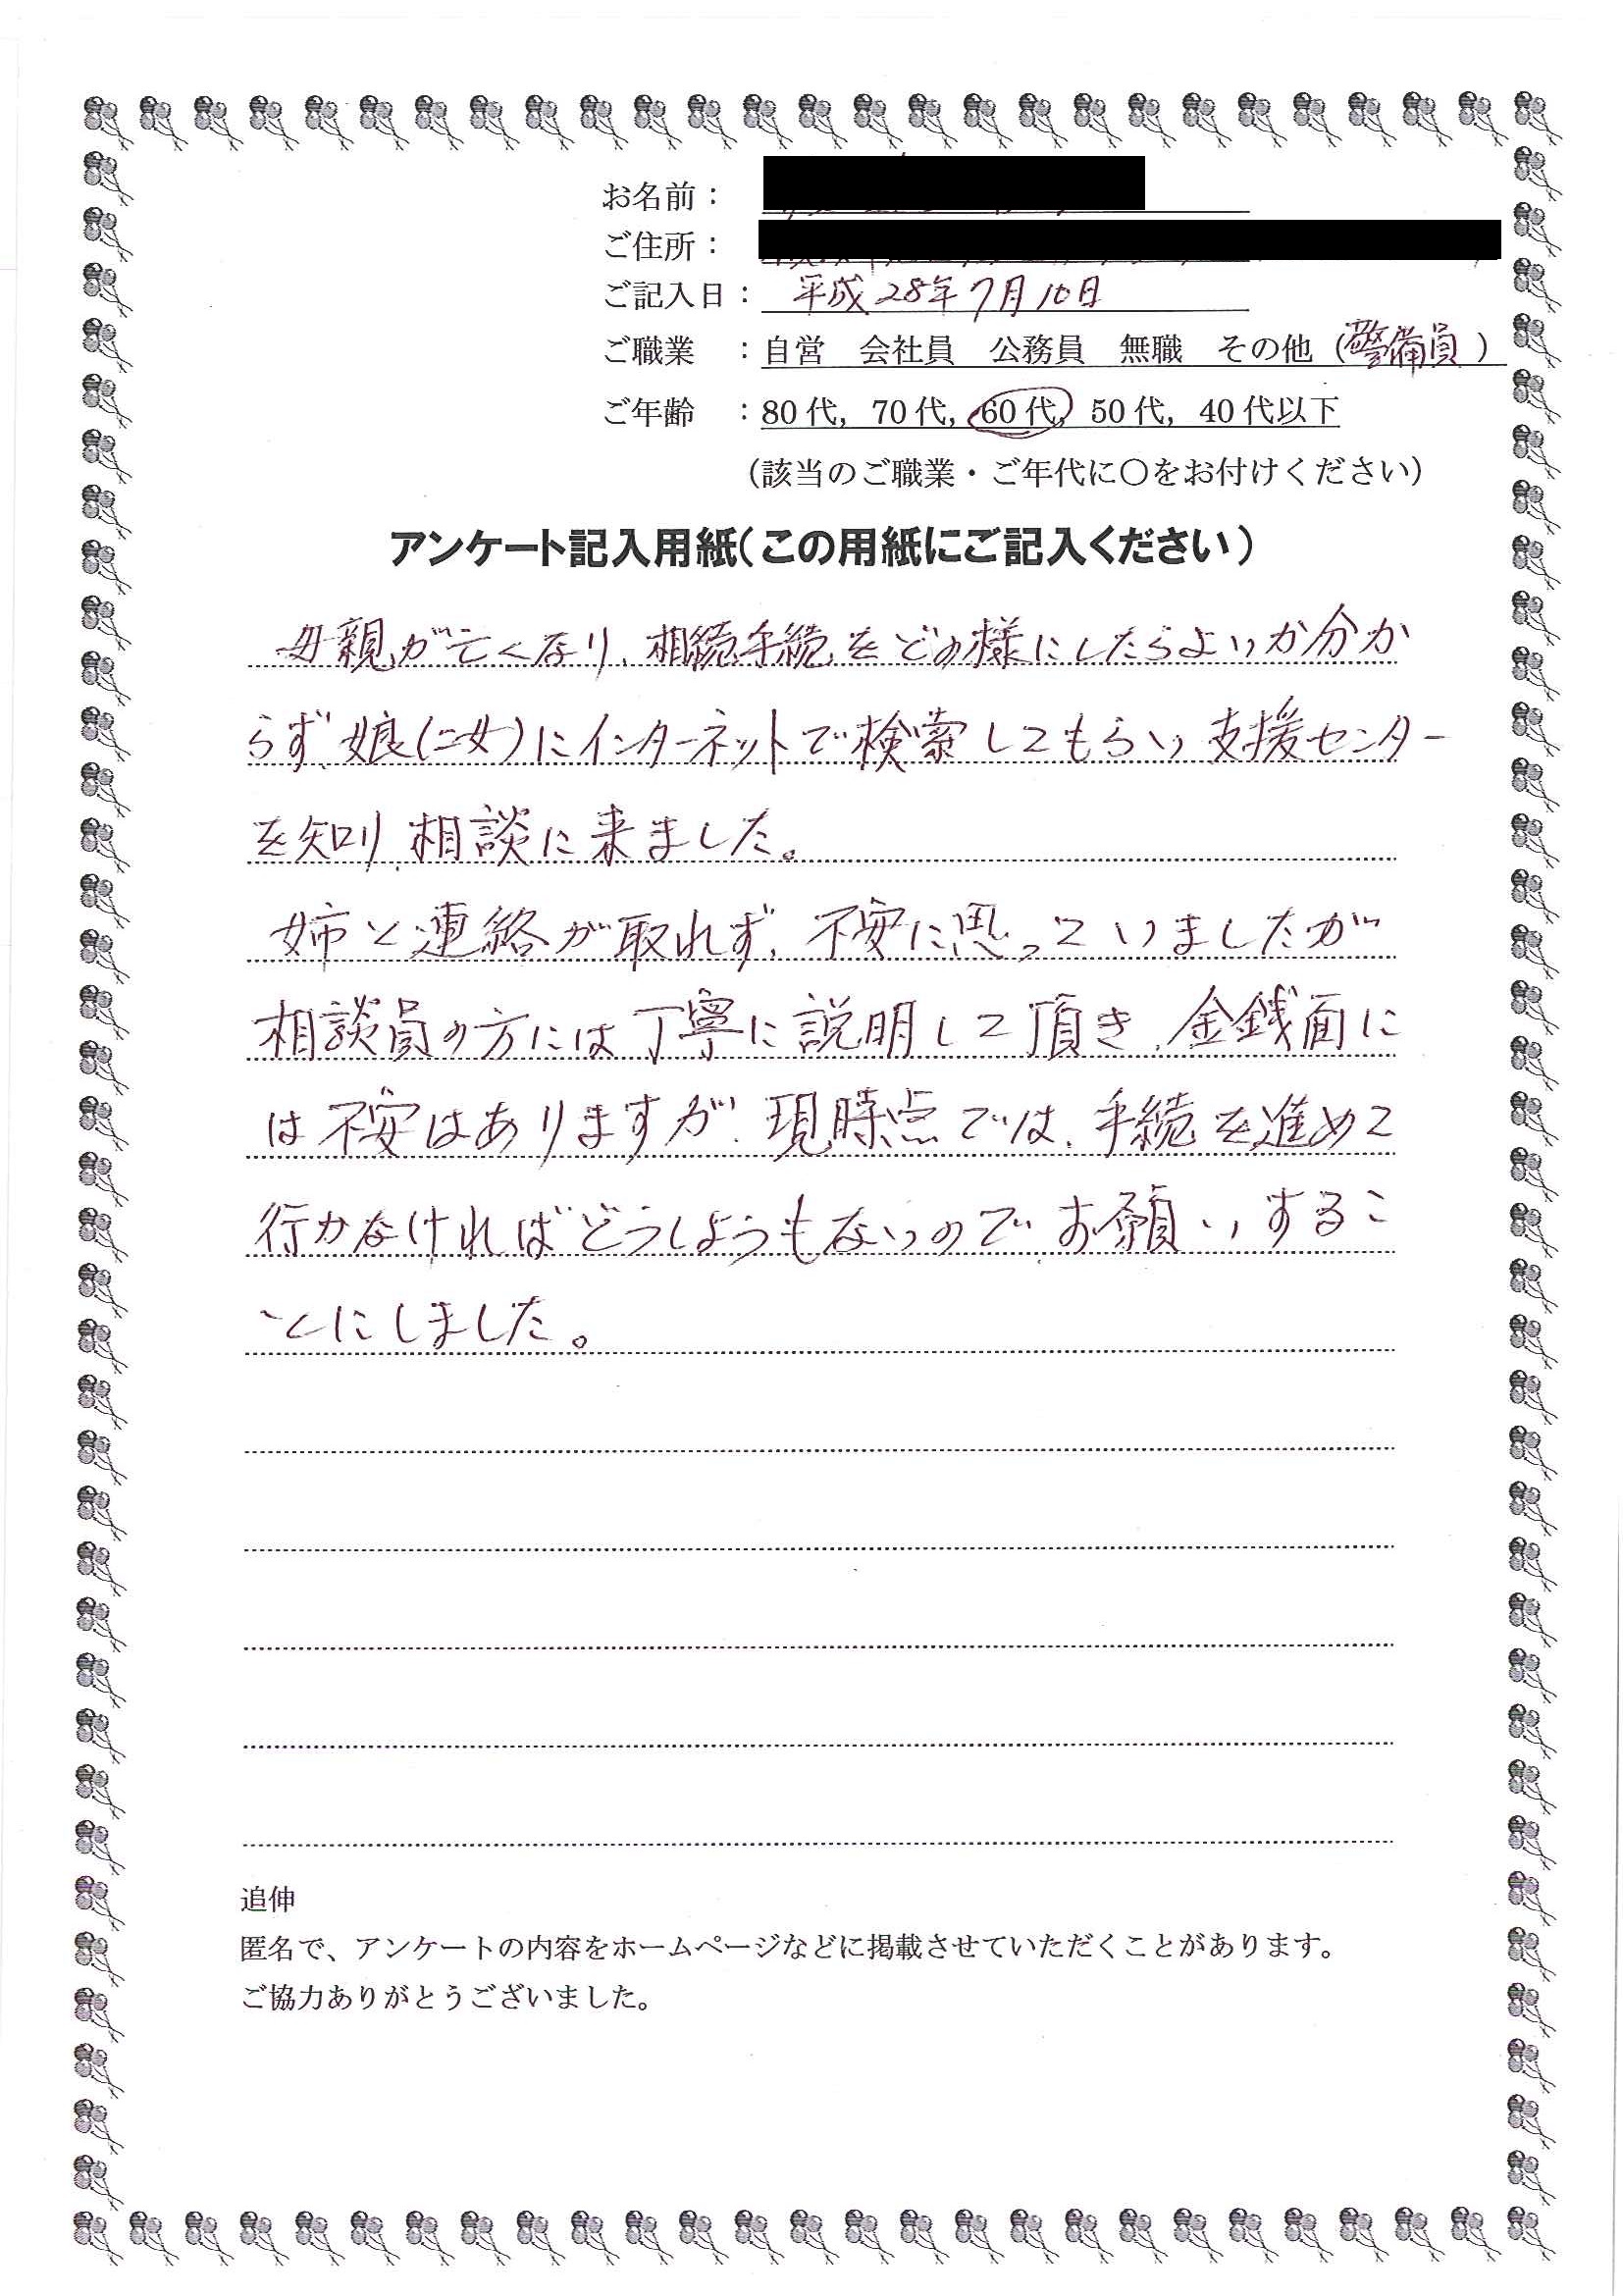 お名前：
ご住所：
ご記入日： 平成28年7月10日
ご職業 ：自営 会社員 公務員 無職 その他（警備員）
ご年齢 ：80代，70代，60代，50代，40代以下
（該当のご職業・ご年代に〇をお付けください）
アンケート記入用紙（この用紙にご記入ください）
母親が亡くなり、相続手続をどの様にしたらよいか分か
らず、娘（二女）にインターネットで検索してもらい支援センター
を知り、相談に来ました。
姉と連絡が取れず、不安に思っていましたが
相談員の方には丁寧に説明して頂き、金銭面に
は不安はありますが、現時点では、手続を進めて
行かなければどうしようもないので、お願いするこ
とにしました。
追伸
匿名で、アンケートの内容をホームページなどに掲載させていただくことがあります。
ご協力ありがとうございました。